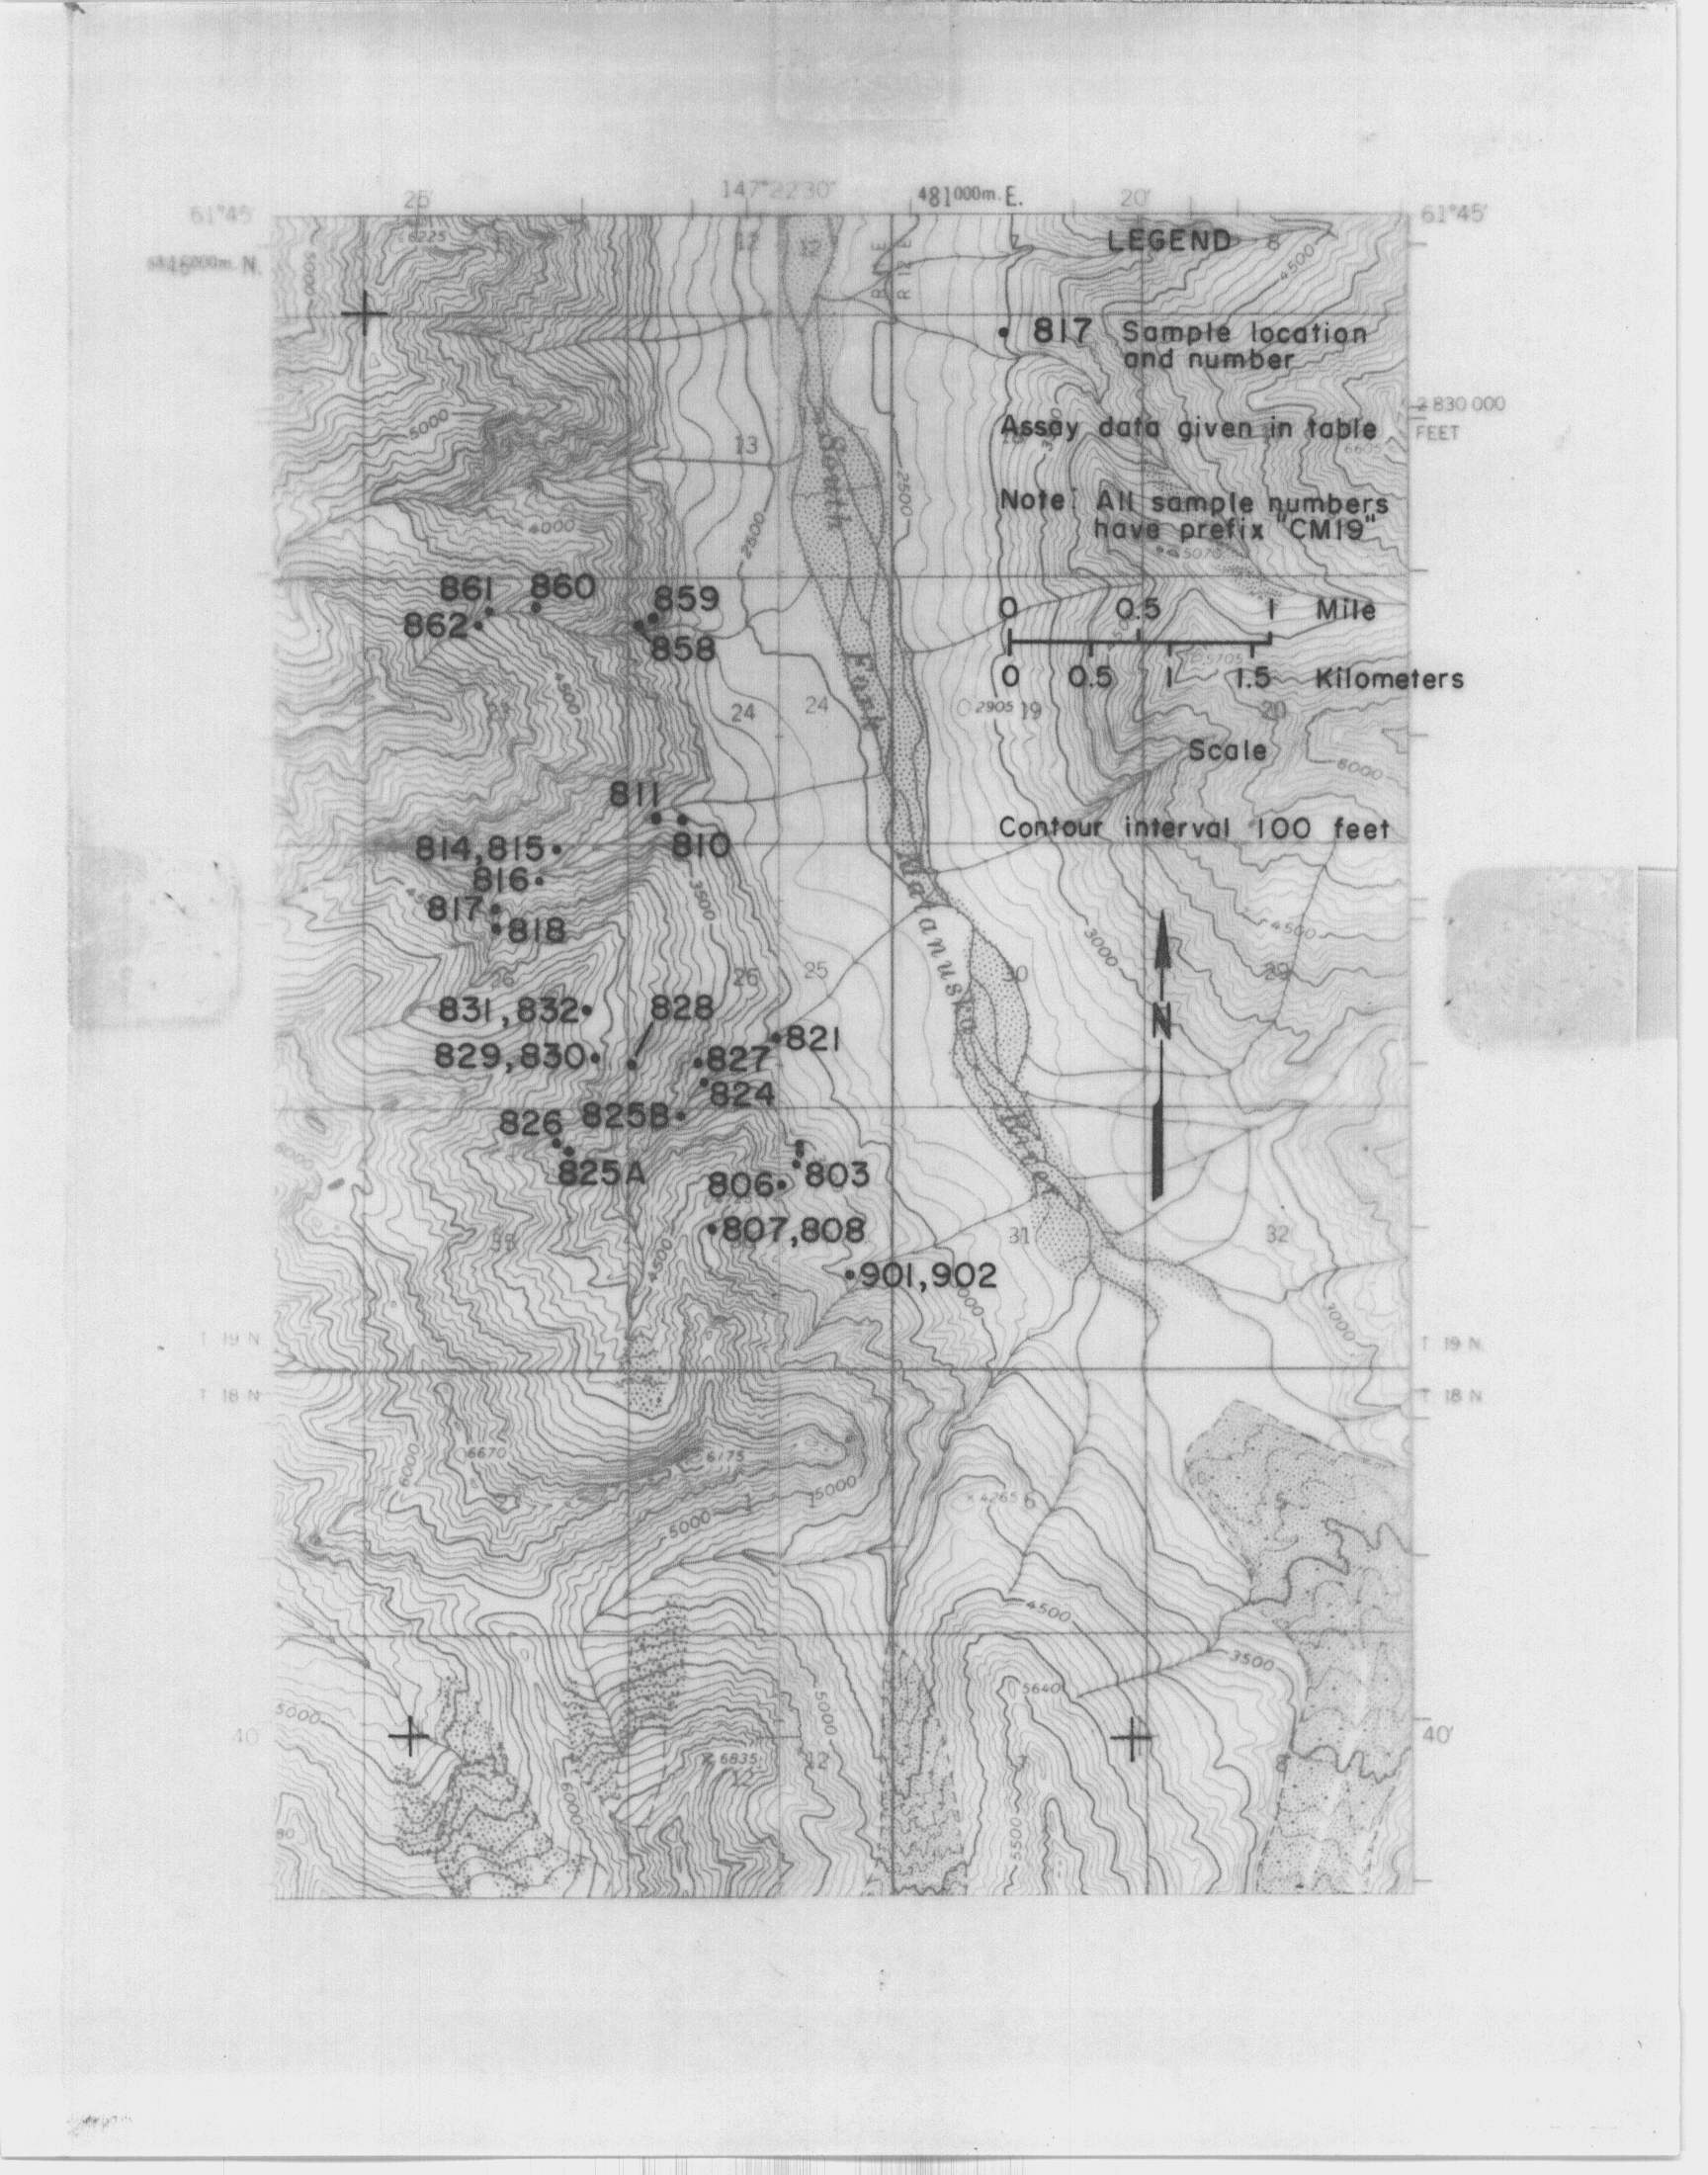 25'
147°22'30"
481000m. E.
20'
61°45'
61°45'
6225
12
12
7
LEGEND
8
4500
5000
R 12 E
817 Sample location
and number
2 830 000
FEET
5000
13
South
2500
Assay data given in table
6605
2500
Note: All sample numbers
have prefix "CM19"
4000
5070
861
860
859
862
858
0 0.5 1 Mile
0 0.5 1 1.5 Kilometers
4500
Fork
5705
24
24
2905
19
20
Scale
6000
811
814,815
810
Contour interval 100 feet
816
3500
817
818
Matanuska
4500
3000
26
26
25
30
29
831,832
828
N
829,830
827
821
824
826
825B
825A
River
803
806
807,808
4500
31
32
901,902
3000
T 19 N
T 19 N
T 18 N
T 18 N
6670
6175
6000
5000
5000
1
1
4265
6
5
4500
3500
5000
5640
5000
40
40'
6835
12
7
8
6000
5500